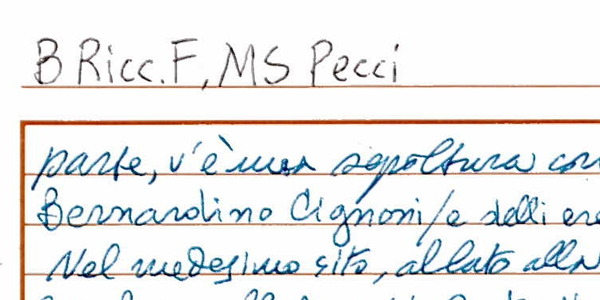 B Ricc. F, MS Pecci
parte, v'è una sepoltura con
Bernardino Cignoni/e delli ere
Nel medesimo sito, allato alla